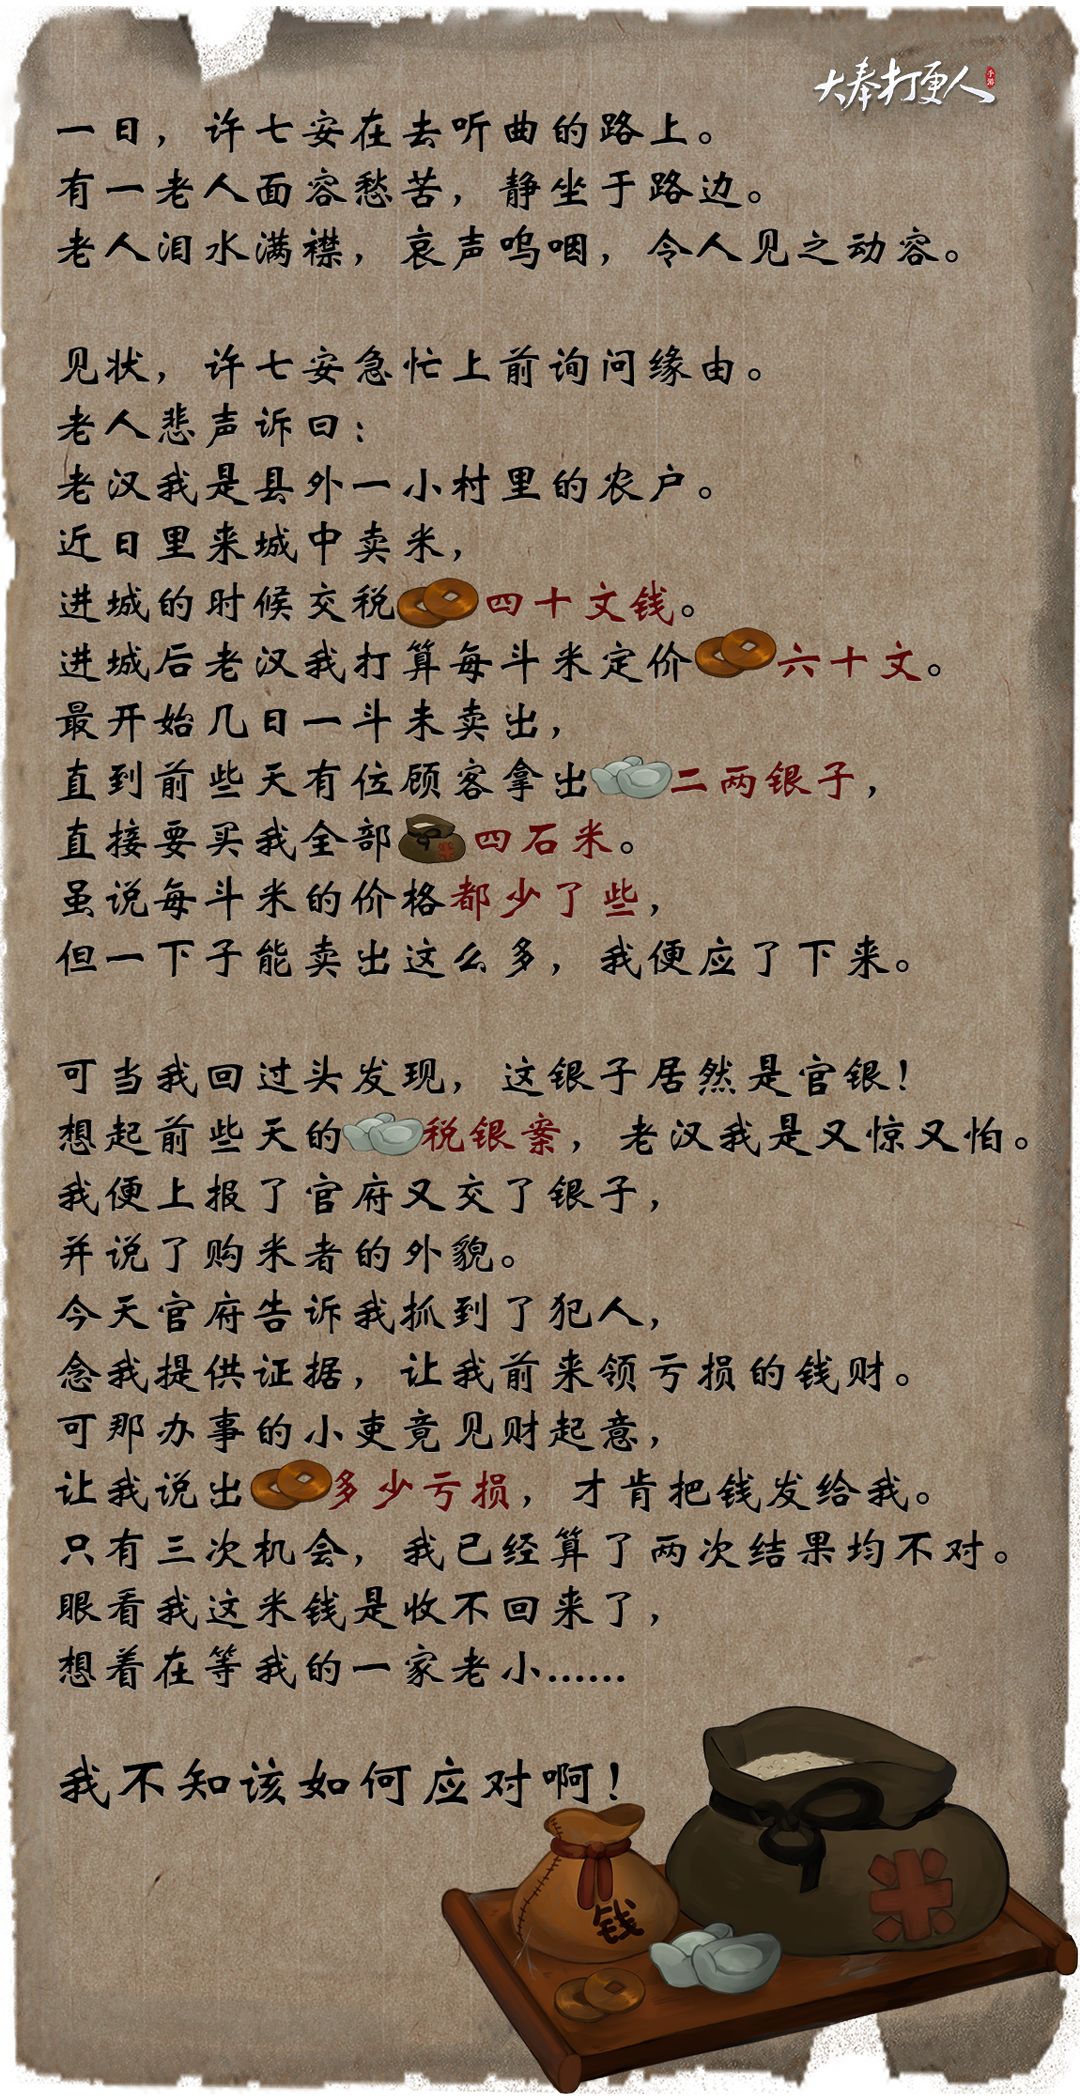 大奉打更人
手游
一日，许七安在去听曲的路上。
有一老人面容愁苦，静坐于路边。
老人泪水满襟，哀声呜咽，令人见之动容。
见状，许七安急忙上前询问缘由。
老人悲声诉曰：
老汉我是县外一小村里的农户。
近日里来城中卖米，
进城的时候交税四十文钱。
进城后老汉我打算每斗米定价六十文。
最开始几日一斗未卖出，
直到前些天有位顾客拿出二两银子，
直接要买我全部四石米。
虽说每斗米的价格都少了些，
但一下子能卖出这么多，我便应了下来。
可当我回过头发现，这银子居然是官银！
想起前些天的税银案，老汉我是又惊又怕。
我便上报了官府又交了银子，
并说了购米者的外貌。
今天官府告诉我抓到了犯人，
念我提供证据，让我前来领亏损的钱财。
可那办事的小吏竟见财起意，
让我说出多少亏损，才肯把钱发给我。
只有三次机会，我已经算了两次结果均不对。
眼看我这米钱是收不回来了，
想着在等我的一家老小......
我不知该如何应对啊！
钱
米